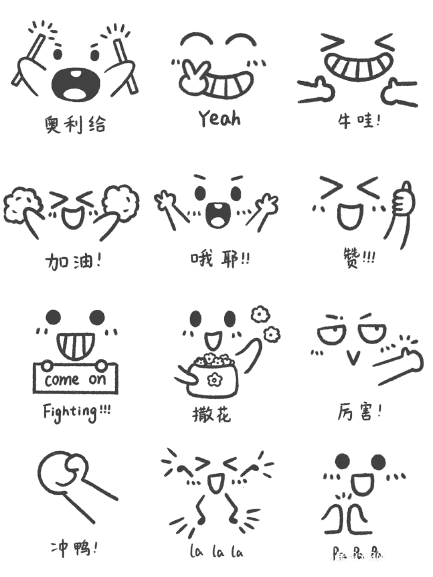 奥利给
Yeah
牛哇!
加油!
哦耶!!
赞!!!
come on
Fighting!!!
撒花
厉害!
冲鸭!
la la la